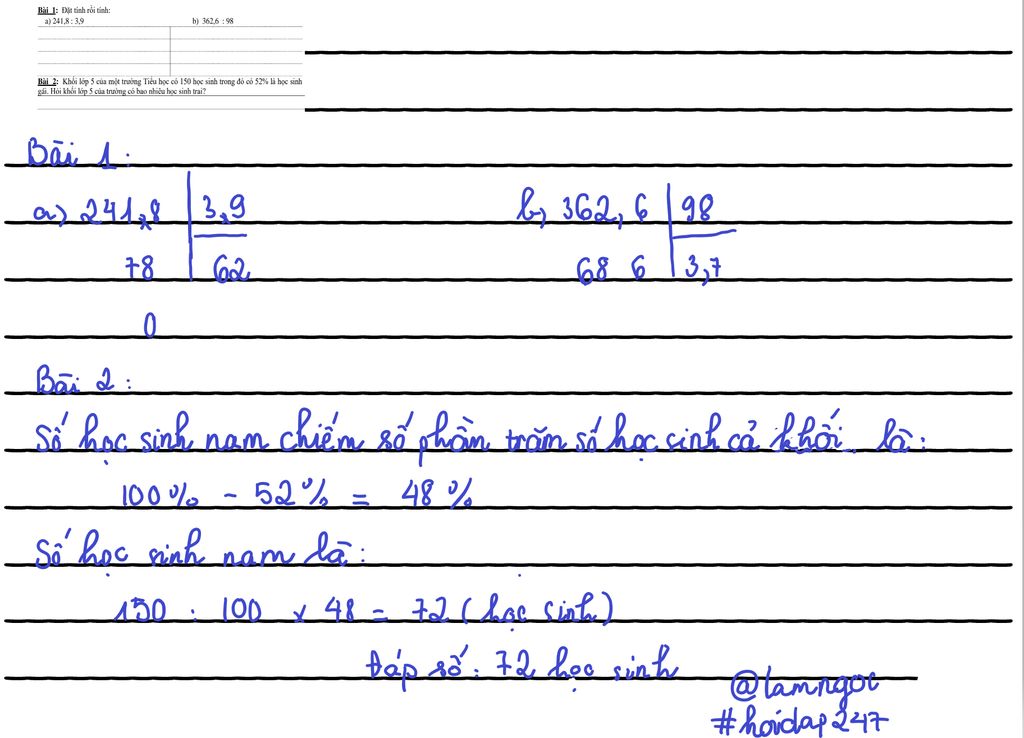 Bài 1: Đặt tính rồi tính:
a) 241,8 : 3,9 b) 362,6 : 98
Bài 2: Khối lớp 5 của một trường Tiểu học có 150 học sinh trong đó có 52% là học sinh
gái. Hỏi khối lớp 5 của trường có bao nhiêu học sinh trai?
Bài 1:
a) 241,8 3,9 b, 362,6 98
78 62 68 6 3,7
0
Bài 2:
Số học sinh nam chiếm số phần trăm số học sinh cả khối là:
100% - 52% = 48%
Số học sinh nam là:
150 : 100 x 48 = 72 (học sinh)
Đáp số: 72 học sinh
@lamngoc
#hoidap247